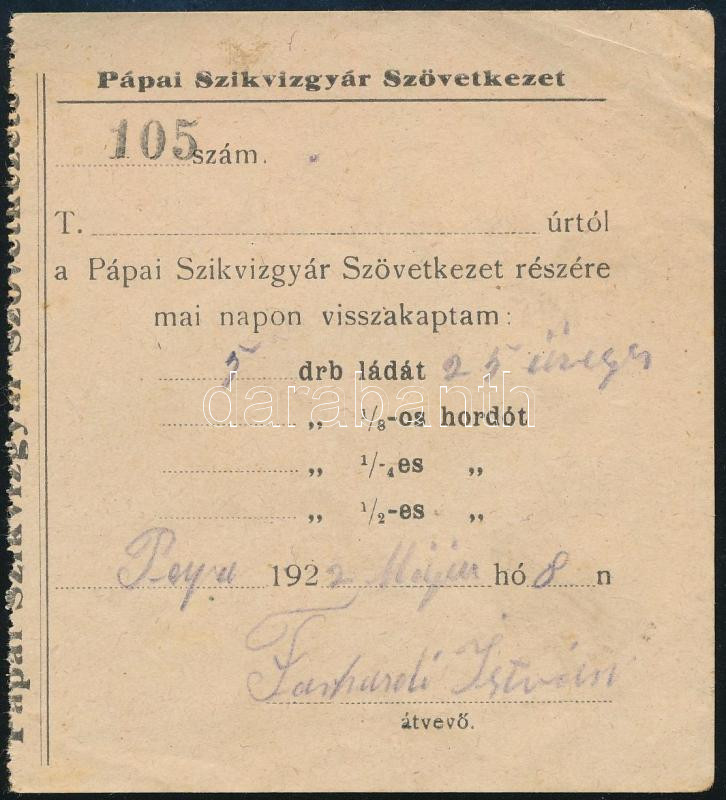 Pápai Szikvizgyár Szövetkezet
105 szám.
T. úrtól
a Pápai Szikvizgyár Szövetkezet részére
mai napon visszakaptam:
5 drb ládát 25 üveges
„ 1/8-os hordót
„ 1/-4es „
„ 1/2-es „
1922 Május hó 8 n
István
átvevő.
Pápai Szikvizgyár Szövetkezete
darabanth